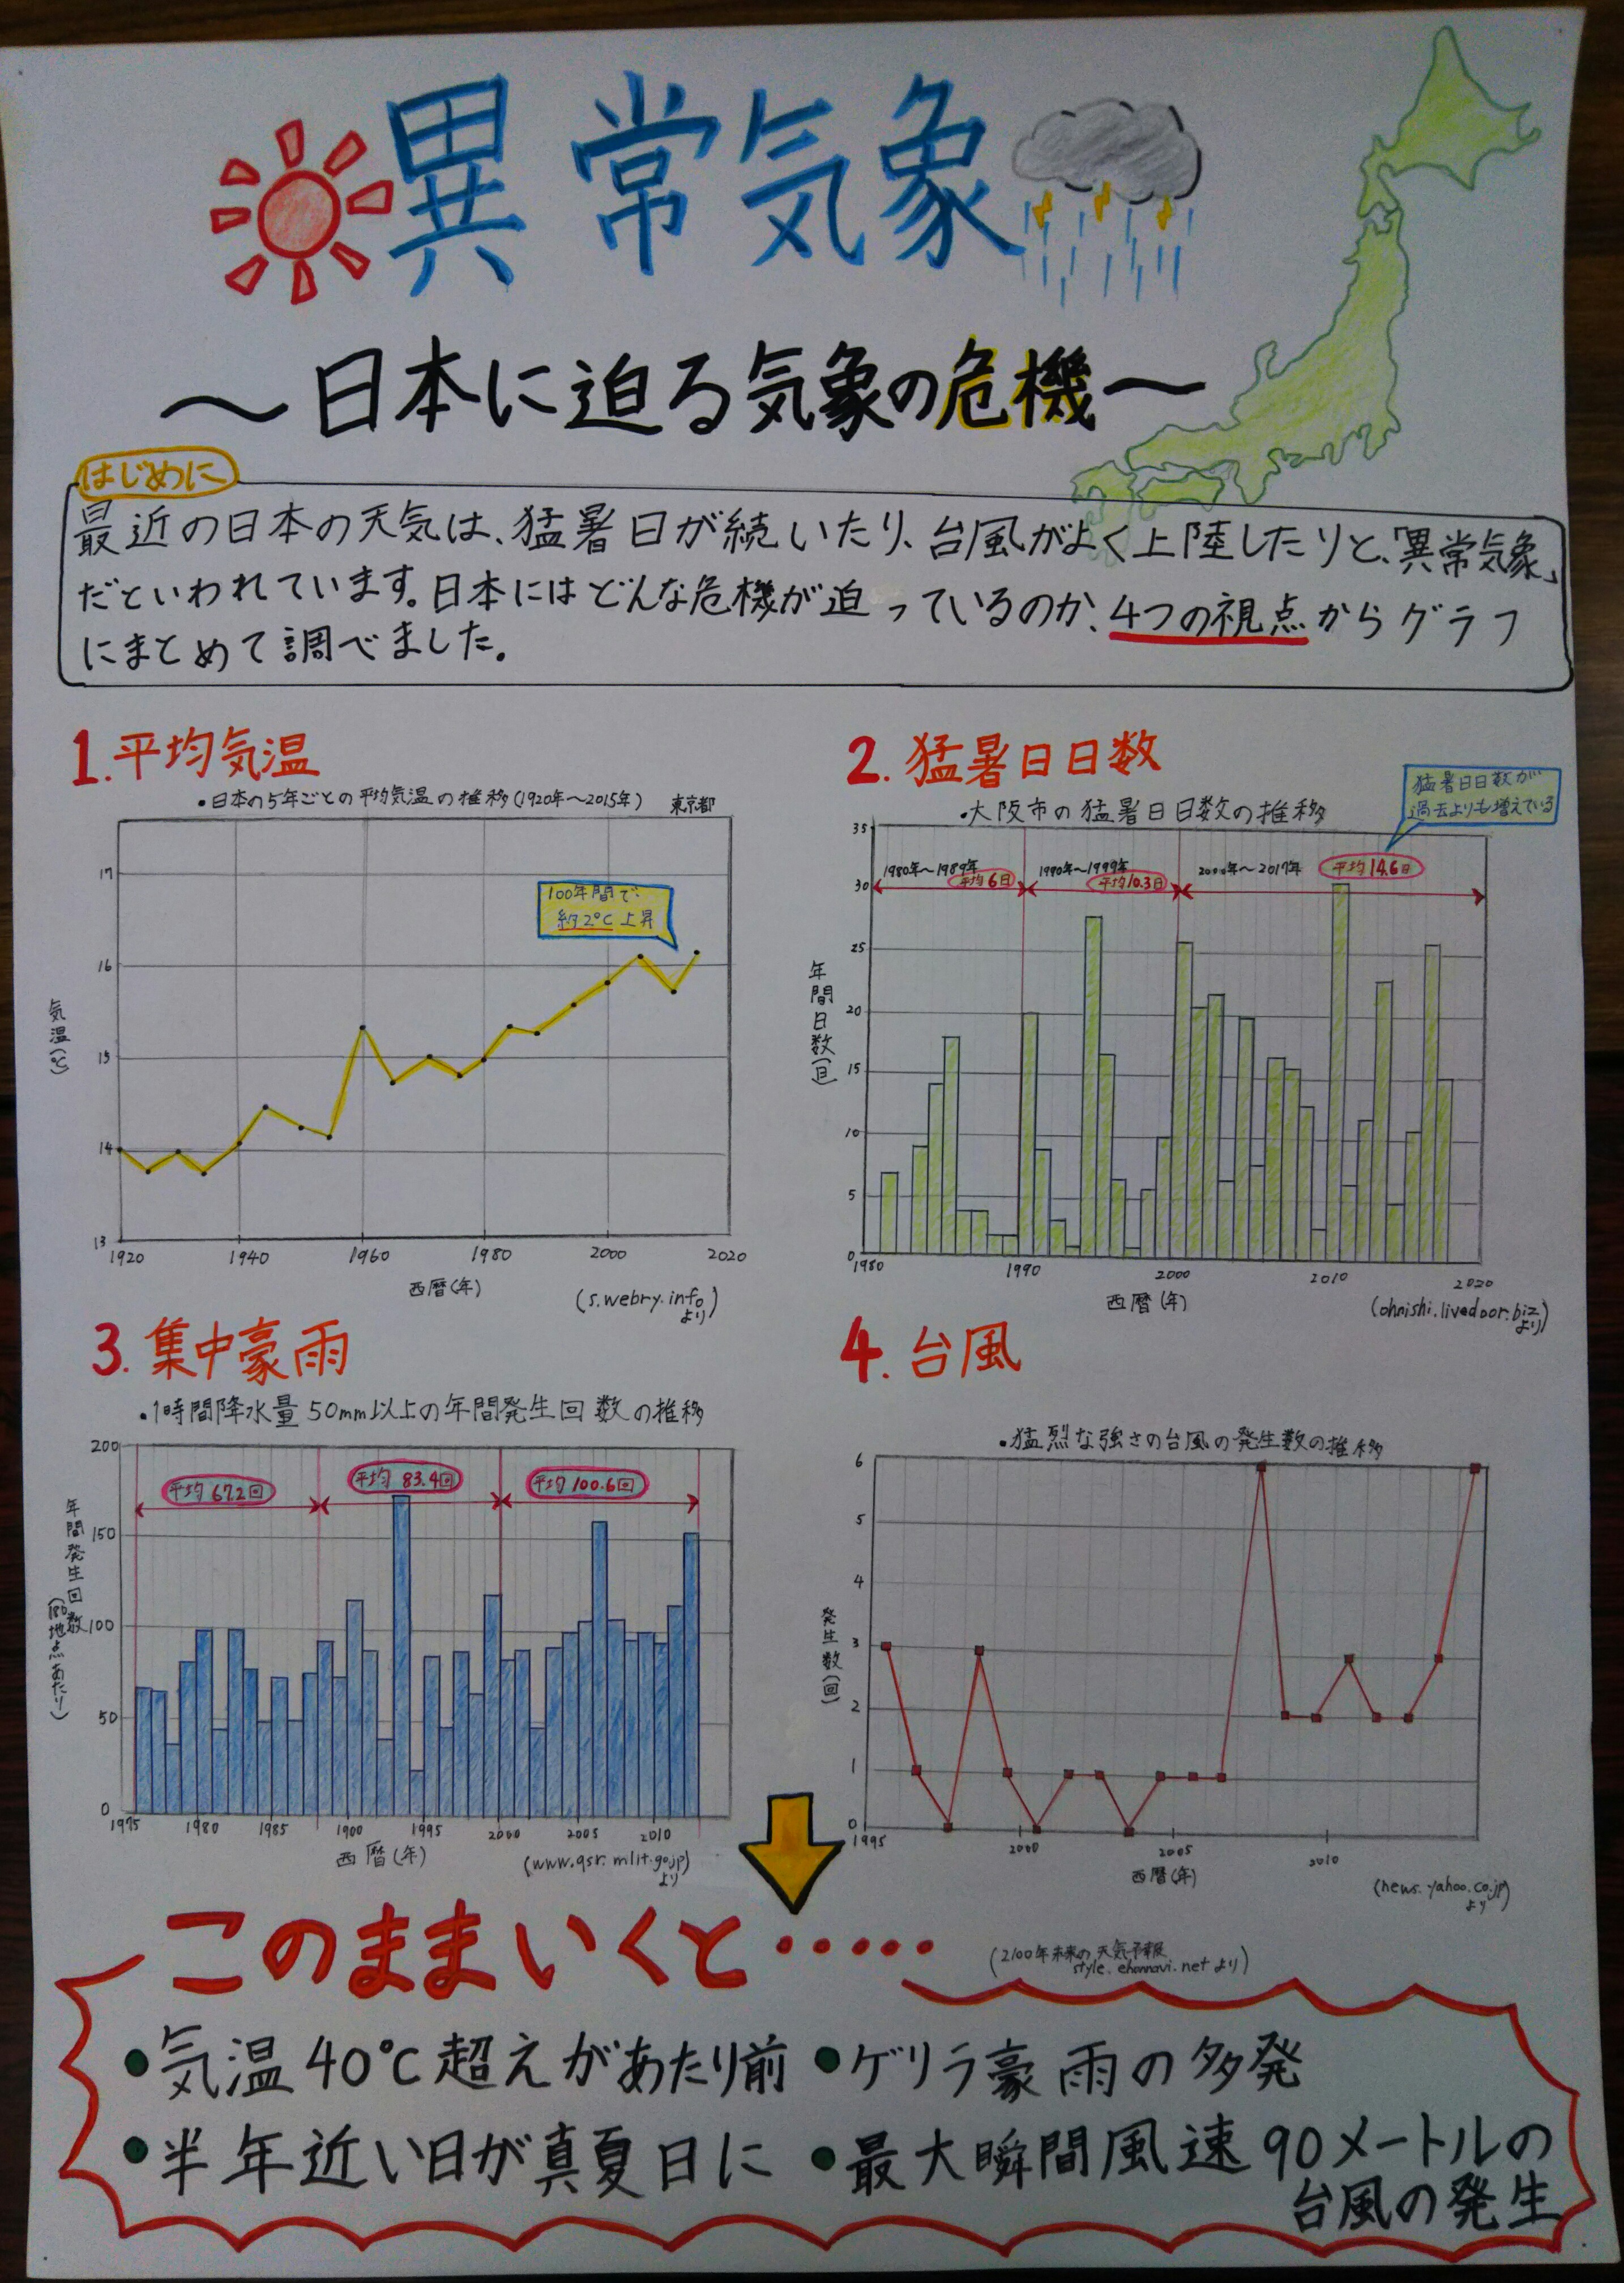 異常気象
～日本に迫る気象の危機～
はじめに
最近の日本の天気は、猛暑日が続いたり、台風がよく上陸したりと、「異常気象」
だといわれています。日本にはどんな危機が迫っているのか、4つの視点からグラフ
にまとめて調べました。
1.平均気温
・日本の5年ごとの平均気温の推移(1920年～2015年) 東京都
100年間で
約2℃上昇
気温(℃)
17
16
15
14
13
1920 1940 1960 1980 2000 2020
西暦(年)
(s.webry.info
より)
2.猛暑日日数
・大阪市の猛暑日日数の推移
猛暑日日数が
過去よりも増えている
1980年～1989年
平均6日
1990年～1999年
平均10.3日
2000年～2017年 平均14.6日
年間日数(日)
35
30
25
20
15
10
5
0
1980 1990 2000 2010 2020
西暦(年)
(ohnishi.livedoor.biz
より)
3.集中豪雨
・1時間降水量50mm以上の年間発生回数の推移
平均67.2回 平均83.4回 平均100.6回
年間発生回数
(180地点あたり)
200
150
100
50
0
1975 1980 1985 1900 1995 2000 2005 2010
西暦(年)
(www.qsr.mlit.go.jp)
より
4.台風
・猛烈な強さの台風の発生数の推移
発生数(回)
6
5
4
3
2
1
0
1995 2000 2005 2010
西暦(年)
(news.yahoo.co.jp)
より
このままいくと・・・・・
(2100年未来の天気予報
style.ehonnavi.netより)
●気温40℃超えがあたり前 ●ゲリラ豪雨の多発
●半年近い日が真夏日に ●最大瞬間風速90メートルの
台風の発生